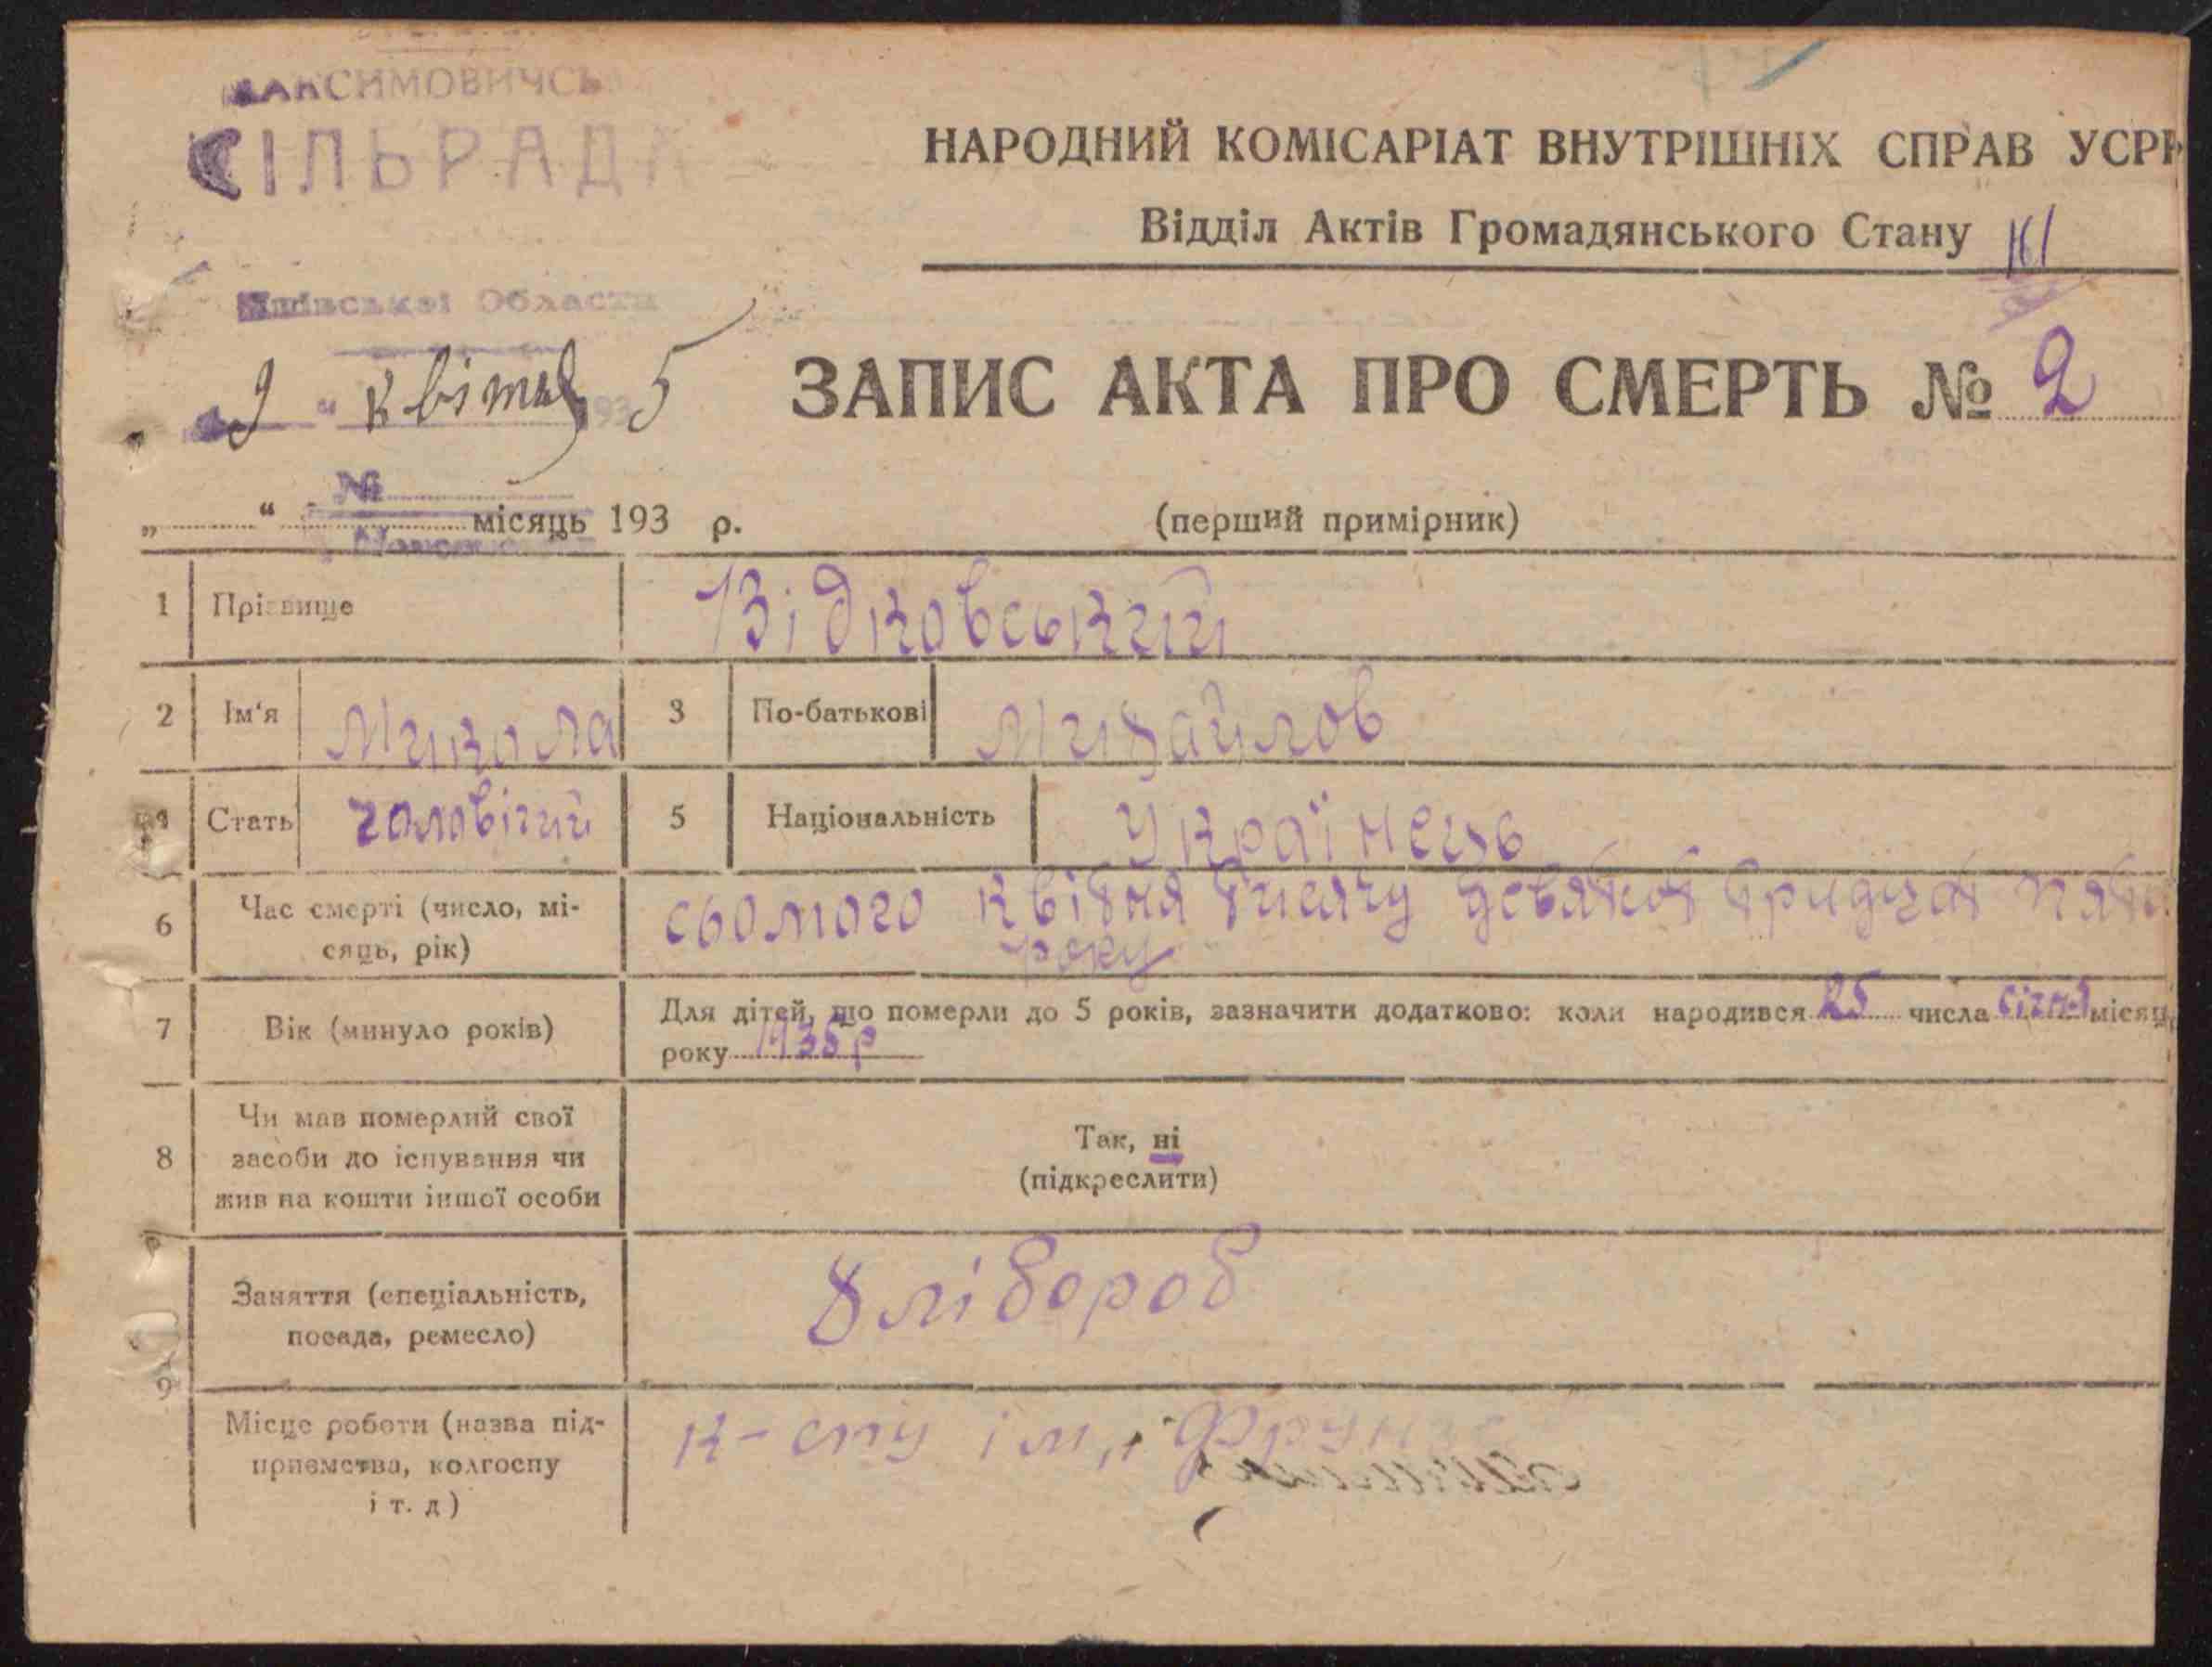 МАКСИМОВИЧСЬ
СІЛЬРАДА
Київської Области
НАРОДНИЙ КОМІСАРІАТ ВНУТРІШНІХ СПРАВ УСРР
Відділ Актів Громадянського Стану
9 " квітня 1935
ЗАПИС АКТА ПРО СМЕРТЬ № 2
№
„ “ місяць 193 р.
(перший примірник)
1 Прізвище Відковський
2 Ім‘я Микола 3 По-батькові Михайлов
4 Стать чоловічий 5 Національність Українець
6 Час смерті (число, мі-
сяць, рік)
сьомого квітня тисячу девятсот тридцят пято
року
7 Вік (минуло років)
Для дітей, що померли до 5 років, зазначити додатково: коли народився 25 числа січня місяц
року 1935р
8 Чи мав померлий свої
засоби до існування чи
жив на кошти іншої особи
Так, ні
(підкреслити)
Заняття (спеціальність,
посада, ремесло)
хлібороб
9
Місце роботи (назва під-
приємства, колгоспу
і т. д)
к-спу ім, Фрунзе